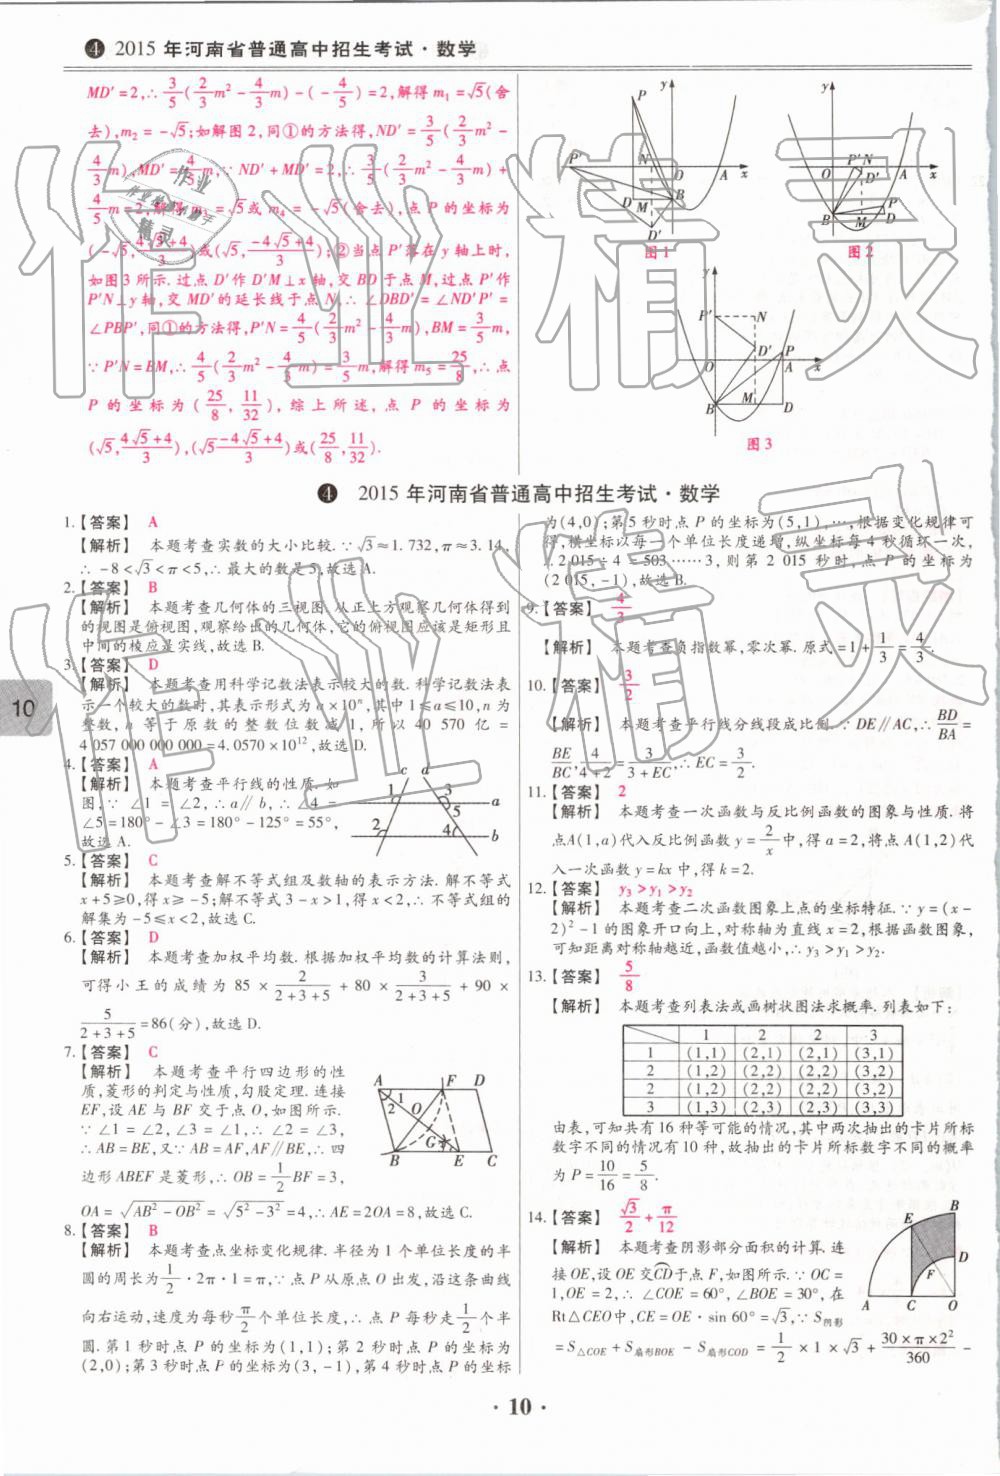 ④ 2015 年河南省普通高中招生考试·数学
MD′=2,∴ 3/5(2/3m²-4/3m)-(-4/5)=2,解得 m₁=√5(舍
去),m₂=-√5;如解图 2,同①的方法得,ND′=3/5(2/3m²-
4/3m),MD′=4/5m,∵ ND′+MD′=2,∴ 3/5(2/3m²-4/3m)+
4/5m=2,解得 m₃=√5或 m₄=-√5(舍去),点 P 的坐标为
(-√5,(4√5+4)/3)或(√5,(-4√5+4)/3);②当点 P′落在 y 轴上时,
如图 3 所示.过点 D′作 D′M⊥x 轴,交 BD 于点 M,过点 P′作
P′N⊥y 轴,交 MD′的延长线于点 N,∴ ∠DBD′=∠ND′P′=
∠PBP′,同①的方法得,P′N=4/5(2/3m²-4/3m),BM=3/5m,
∵ P′N=BM,∴ 4/5(2/3m²-4/3m)=3/5m,解得 m₅=25/8,∴ 点
P 的坐标为(25/8,11/32),综上所述,点 P 的坐标为
(√5,(4√5+4)/3),(√5,(-4√5+4)/3)或(25/8,11/32).
y
P
P′
N
O
A
x
B
D
M
D′
图 1
y
P′N
O
D′
A
x
B
P
M
D
图 2
y
P′
N
D′
P
O
A
x
B
M
D
图 3
④ 2015 年河南省普通高中招生考试·数学
1.【答案】 A
【解析】 本题考查实数的大小比较.∵ √3≈1.732,π≈3.14,
∴ -8<√3<π<5,∴ 最大的数是 5,故选 A.
2.【答案】 B
【解析】 本题考查几何体的三视图.从正上方观察几何体得到
的视图是俯视图,观察给出的几何体,它的俯视图应该是矩形且
中间的棱应是实线,故选 B.
3.【答案】 D
【解析】 本题考查用科学记数法表示较大的数.科学记数法表
示一个较大的数时,其表示形式为 a×10ⁿ,其中 1≤a≤10,n 为
整数,n 等于原数的整数位数减 1,所以 40 570 亿 =
4 057 000 000 000=4.0570×10¹²,故选 D.
4.【答案】 A
【解析】 本题考查平行线的性质.如
图,∵ ∠1=∠2,∴ a∥b,∴ ∠4=
∠5=180°-∠3=180°-125°=55°,
故选 A.
c d
1 3
a
5
2 4
b
5.【答案】 C
【解析】 本题考查解不等式组及数轴的表示方法.解不等式
x+5≥0,得 x≥-5;解不等式 3-x>1,得 x<2,∴ 不等式组的
解集为-5≤x<2,故选 C.
6.【答案】 D
【解析】 本题考查加权平均数.根据加权平均数的计算法则,
可得小王的成绩为 85×2/(2+3+5)+80×3/(2+3+5)+90×
5/(2+3+5)=86(分),故选 D.
7.【答案】 C
【解析】 本题考查平行四边形的性
质,菱形的判定与性质,勾股定理.连接
EF,设 AE 与 BF 交于点 O,如图所示.
∵ ∠1=∠2,∠3=∠1,∴ ∠2=∠3,
∴ AB=BE,又∵ AB=AF,AF∥BE,∴ 四
边形 ABEF 是菱形,∴ OB=1/2BF=3,
OA=√(AB²-OB²)=√(5²-3²)=4,∴ AE=2OA=8,故选 C.
A F D
1
2 O
G
3
B E C
8.【答案】 B
【解析】 本题考查点坐标变化规律.半径为 1 个单位长度的半
圆的周长为1/2·2π·1=π,∵ 点 P 从原点 O 出发,沿这条曲线
向右运动,速度为每秒π/2个单位长度,∴ 点 P 每秒走1/2个半
圆.第 1 秒时点 P 的坐标为(1,1);第 2 秒时点 P 的坐标为
(2,0);第 3 秒时点 P 的坐标为(3,-1),第 4 秒时点 P 的坐标
为(4,0);第 5 秒时点 P 的坐标为(5,1),…,根据变化规律可
得,横坐标以每一个单位长度递增,纵坐标每 4 秒循环一次,
∴ 2 015÷4=503……3,则第 2 015 秒时,点 P 的坐标为
(2 015,-1),故选 B.
9.【答案】 4/3
【解析】 本题考查负指数幂,零次幂.原式=1+1/3=4/3.
10.【答案】 3/2
【解析】 本题考查平行线分线段成比例.∵ DE∥AC,∴ BD/BA=
BE/BC,4/(4+2)=3/(3+EC),∴ EC=3/2.
11.【答案】 2
【解析】 本题考查一次函数与反比例函数的图象与性质.将
点A(1,a)代入反比例函数 y=2/x中,得 a=2,将点 A(1,2)代
入一次函数 y=kx 中,得 k=2.
12.【答案】 y₃>y₁>y₂
【解析】 本题考查二次函数图象上点的坐标特征.∵ y=(x-
2)²-1 的图象开口向上,对称轴为直线 x=2,根据函数图象,
可知距离对称轴越近,函数值越小,∴ y₃>y₁>y₂.
13.【答案】 5/8
【解析】 本题考查列表法或画树状图法求概率.列表如下:
1 2 2 3
1 (1,1) (2,1) (2,1) (3,1)
2 (1,2) (2,2) (2,2) (3,2)
2 (1,2) (2,2) (2,2) (3,2)
3 (1,3) (2,3) (2,3) (3,3)
由表,可知共有 16 种等可能的情况,其中两次抽出的卡片所标
数字不同的情况有 10 种,故抽出的卡片所标数字不同的概率
为 P=10/16=5/8.
14.【答案】 √3/2+π/12
【解析】 本题考查阴影部分面积的计算.连
接 OE,设 OE 交CD于点 F,如图所示.∵ OC=
1,OE=2,∴ ∠COE=60°,∠BOE=30°,在
Rt△CEO 中,CE=OE·sin 60°=√3,∵ S阴影
=S△COE+S扇形BOE-S扇形COD=1/2×1×√3+(30×π×2²)/360-
B
E
D
F
A C O
10
·10·
作业精灵
作业精灵